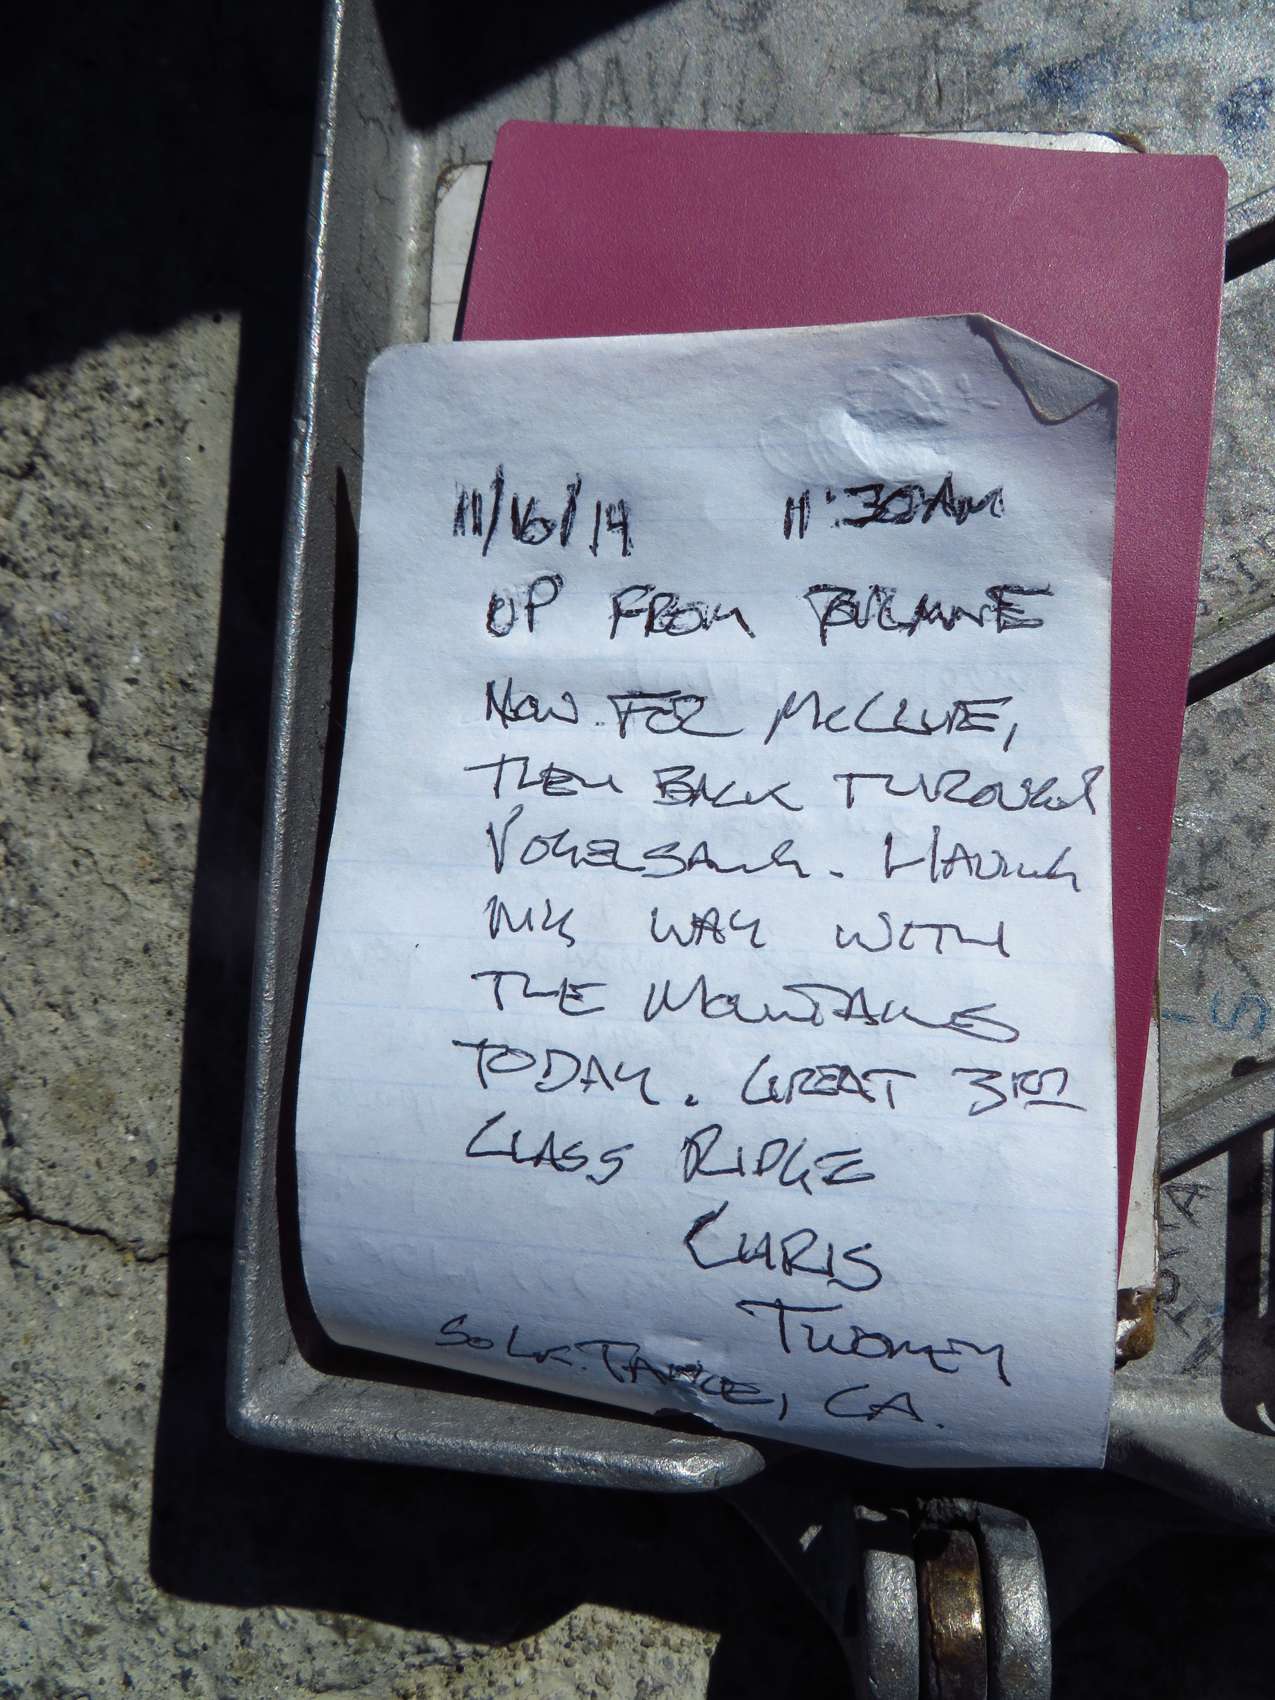 11/16/14 11:30AM
UP FROM TOULUMNE
NOW FOR MCCLURE,
THEN BACK THROUGH
VOGELSANG. HAVING
MY WAY WITH
THE MOUNTAINS
TODAY. GREAT 3RD
CLASS RIDGE
CHRIS
TWOMEY
SO LK. TAHOE, CA.